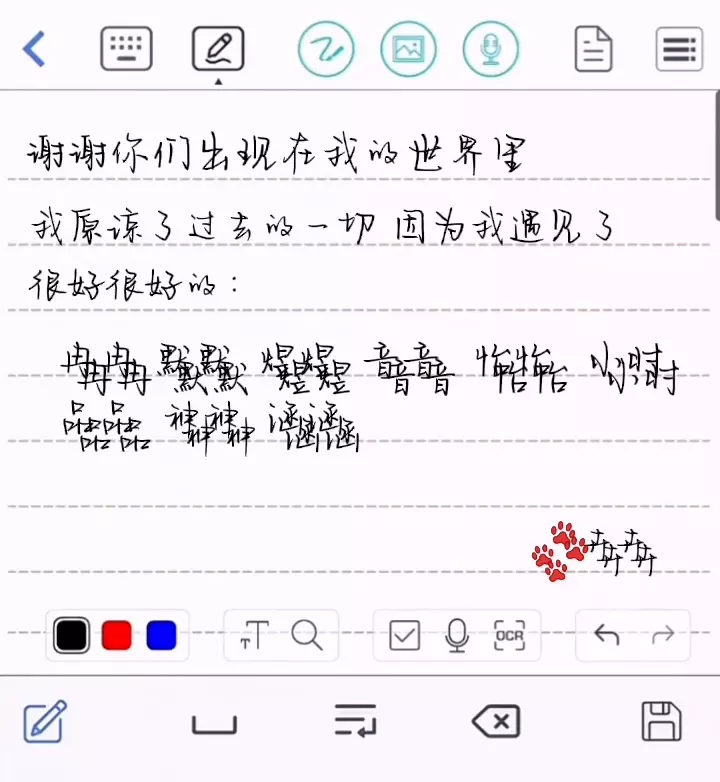 谢谢你们出现在我的世界里
我原谅了过去的一切 因为我遇见了
很好很好的：
冉冉 默默 煜煜 音音 怡怡 小时
品品 神神 涵涵
卉卉
T T
OCR